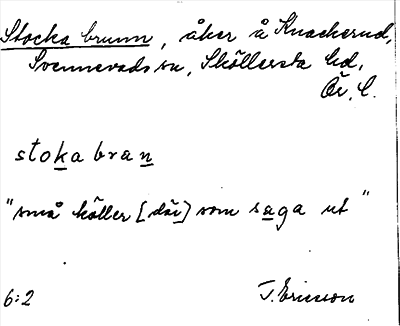 Stocka brunn, åker å Knackerud,
Svennevads sn, Sköllersta hd,
Ör. l.
stokabran
"små håller [där] som saga ut"
6:2 T. Ericsson